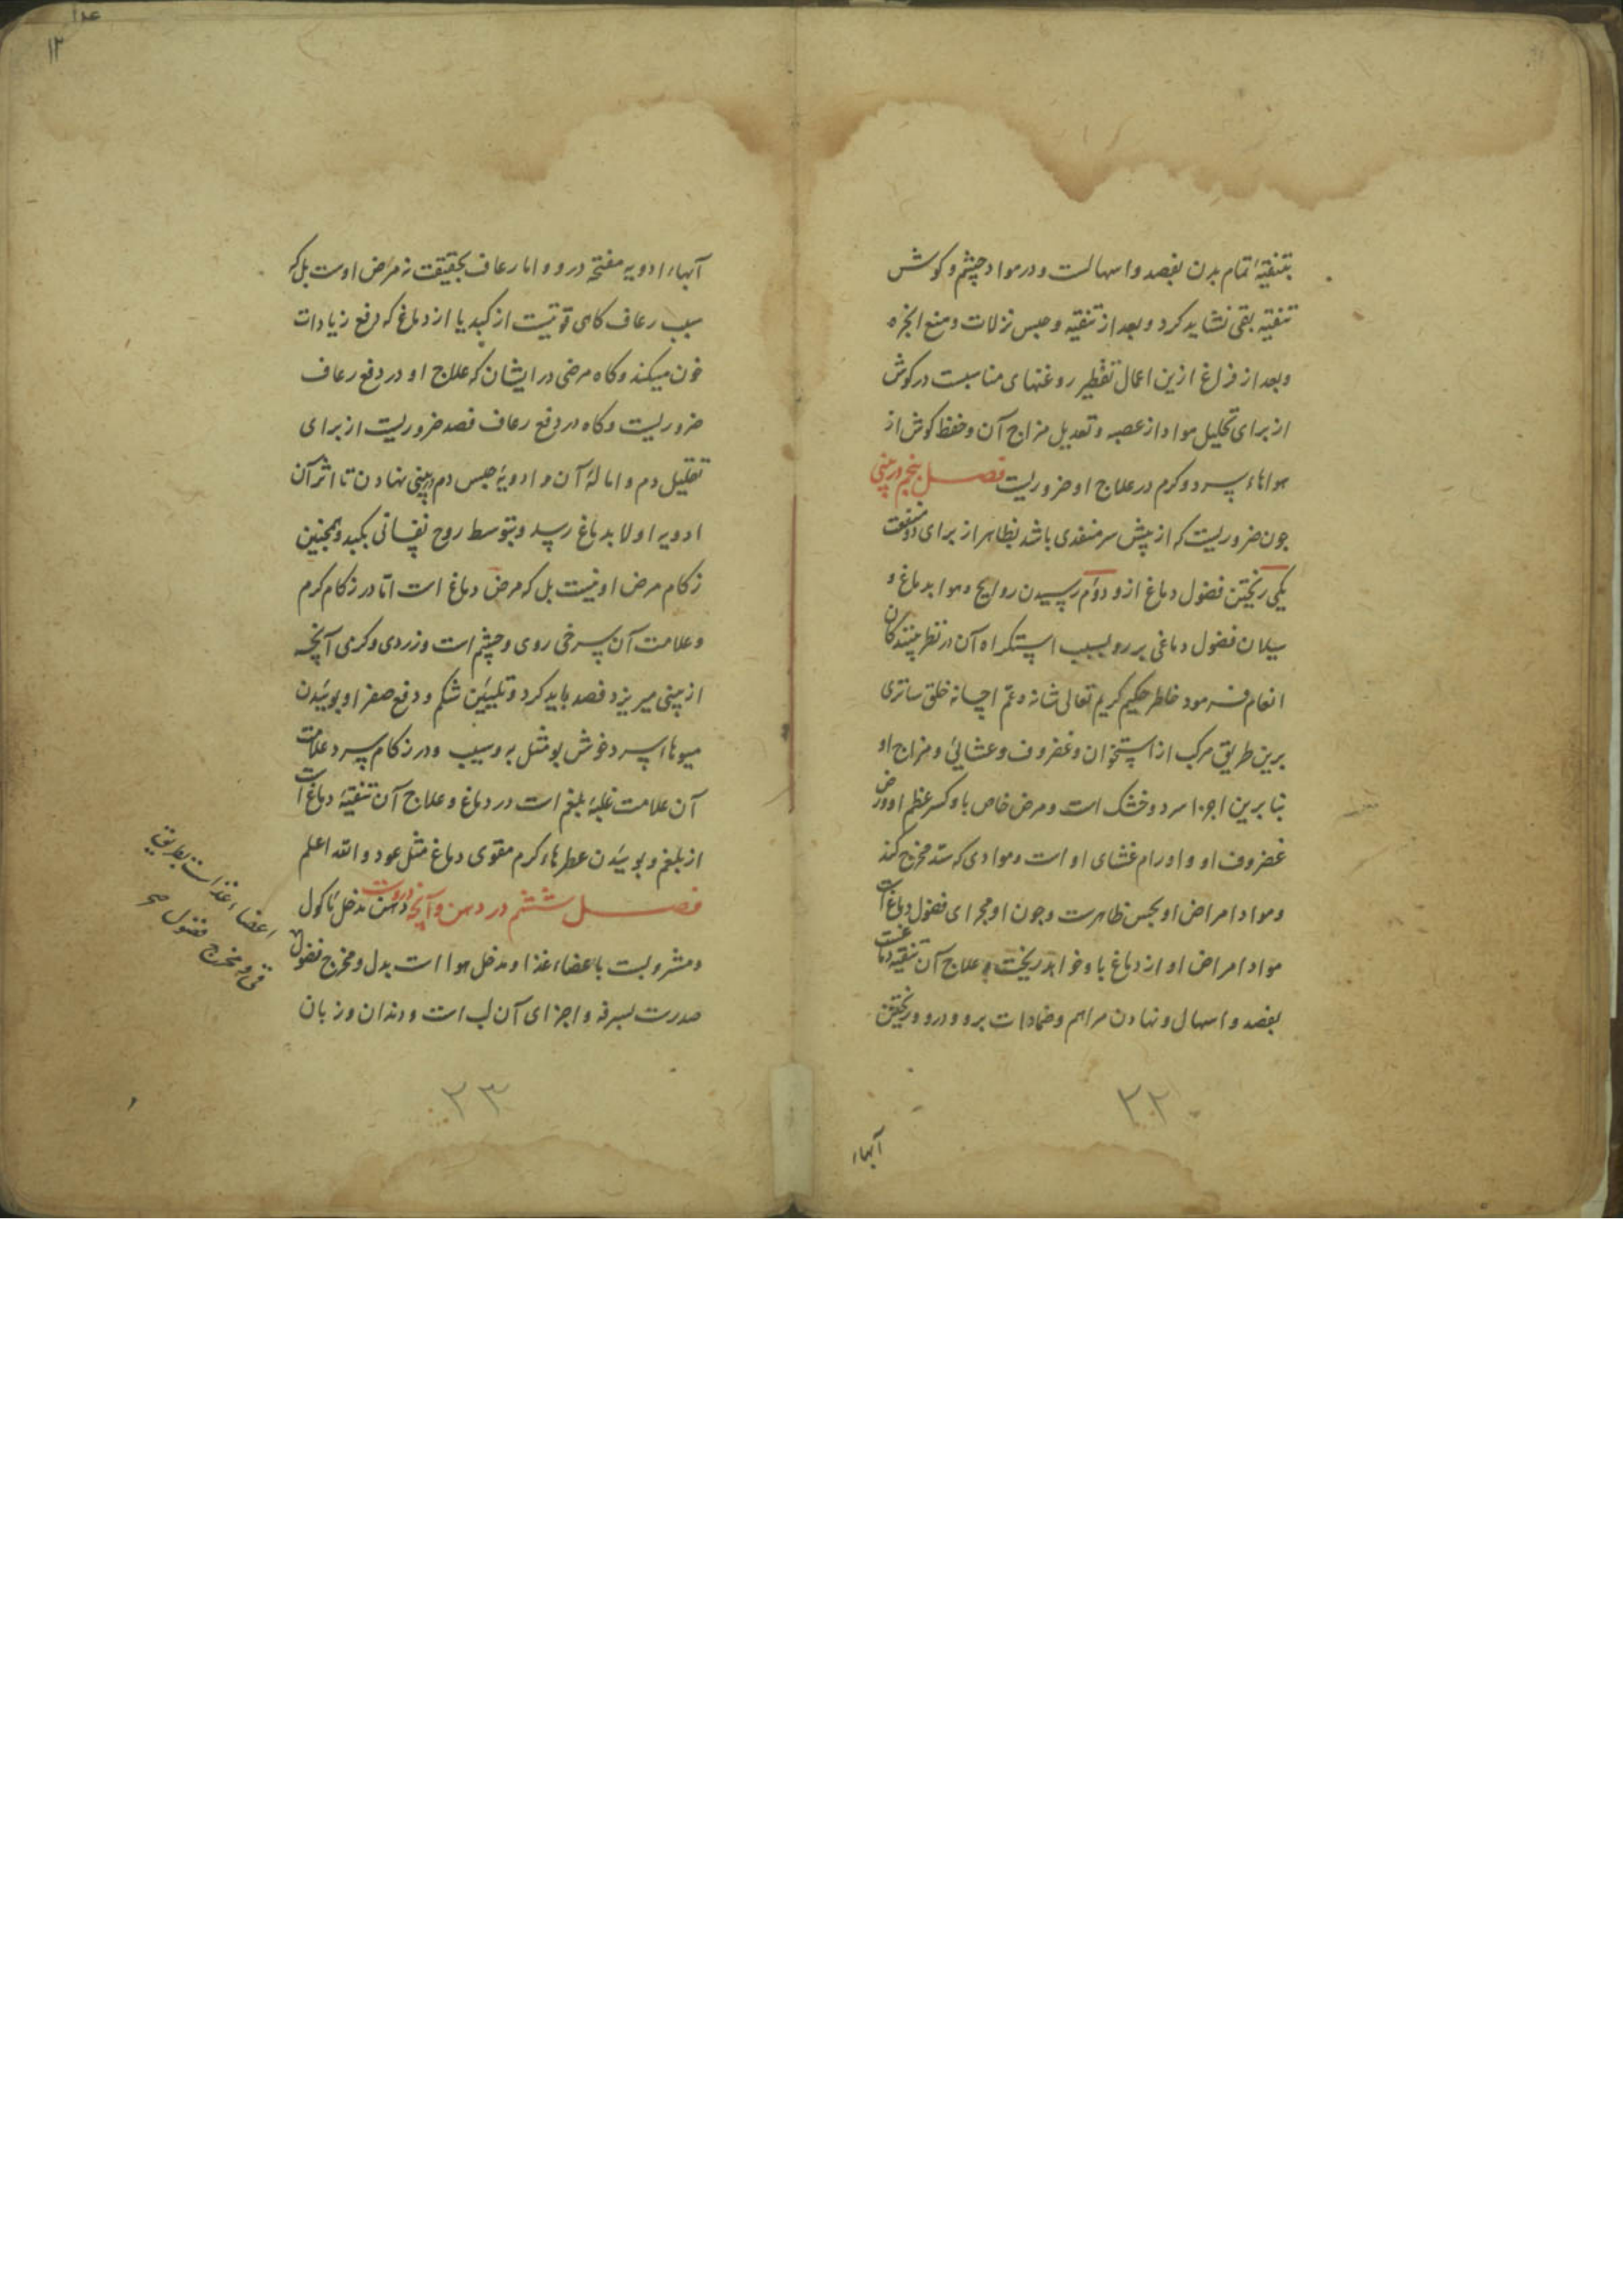 بتنقیهٔ تمام بدن بفصد و اسهالست و در مواد چشم و کوش
تنقیه بقی نشاید کرد و بعد از تنقیه و حبس نزلات و منع ابخره
و بعد از فراغ ازین اعمال تقطیر روغنهای مناسبت در کوش
از برای تحلیل مواد از عصبه و تعدیل مزاج آن و حفظ کوش از
هواهاء سرد و کرم در علاج او ضروریست فصل پنجم در بینی
جون ضروریست که از پیش سر منفذی باشد بظاهر از برای دو منفعت
یکی ریختن فضول دماغ ازو و دوم رسیدن روایح و هوا بدماغ و
سیلان فضول دماغی بر رو بسبب استکراه آن در نظر بینندکان
انعام فرمود خاطر حکیم کریم تعالی شانه و عم احسانه خلق ساتری
برین طریق مرکب از استخوان و غضروف و عشائی و مزاج او
بنا برین اجزا سرد و خشک است و مرض خاص باو کسر عظم او و رض
غضروف او و اورام غشای او است و موادی که سد مخرج کند
و مواد امراض او بحس ظاهرست و جون او مجرای فضول دماغ است
مواد امراض او از دماغ باو خواهد ریخت و علاج آن تنقیه دماغست
بفصد و اسهال و نهادن مراهم و ضمادات برو و درو و ریختن
۲۲
آبهاء
۱۲
آبهاء ادویه مفتحه درو و اما رعاف بحقیقت نه مرض اوست بل که
سبب رعاف کاهی قوتیست از کبد یا از دماغ که دفع زیادات
خون میکند و کاه مرضی در ایشان که علاج او در دفع رعاف
ضروریست و کاه در دفع رعاف فصد ضروریست از برای
تقلیل دم و امالهٔ آن و ادویهٔ حبس دم در بینی نهادن تا اثر آن
ادویه اولا بدماغ رسد و بتوسط روح نفسانی بکبد و همجنین
زکام مرض او نیست بل که مرض دماغ است اما در زکام کرم
و علامت آن سرخی روی و چشم است و زردی و کرمی آنچه
از بینی میریزد فصد باید کرد و تلیین شکم و دفع صفرا و بوئیدن
میوهاء سرد خوش بو مثل به و سیب و در زکام سرد علامت
آن علامت غلبهٔ بلغم است در دماغ و علاج آن تنقیهٔ دماغ است
از بلغم و بوئیدن عطرهاء کرم مقوی دماغ مثل عود و الله اعلم
فصل ششم در دهن و آنچه دروست دهن مدخل ماکول
و مشروبست باعضاء غذا و مدخل هوا است بدل و مخرج فضول
صدرست بسرفه و اجزای آن لب است و دندان و زبان
اعضاء غذاست بطریق
قی و مخرج فضول صح
۲۳